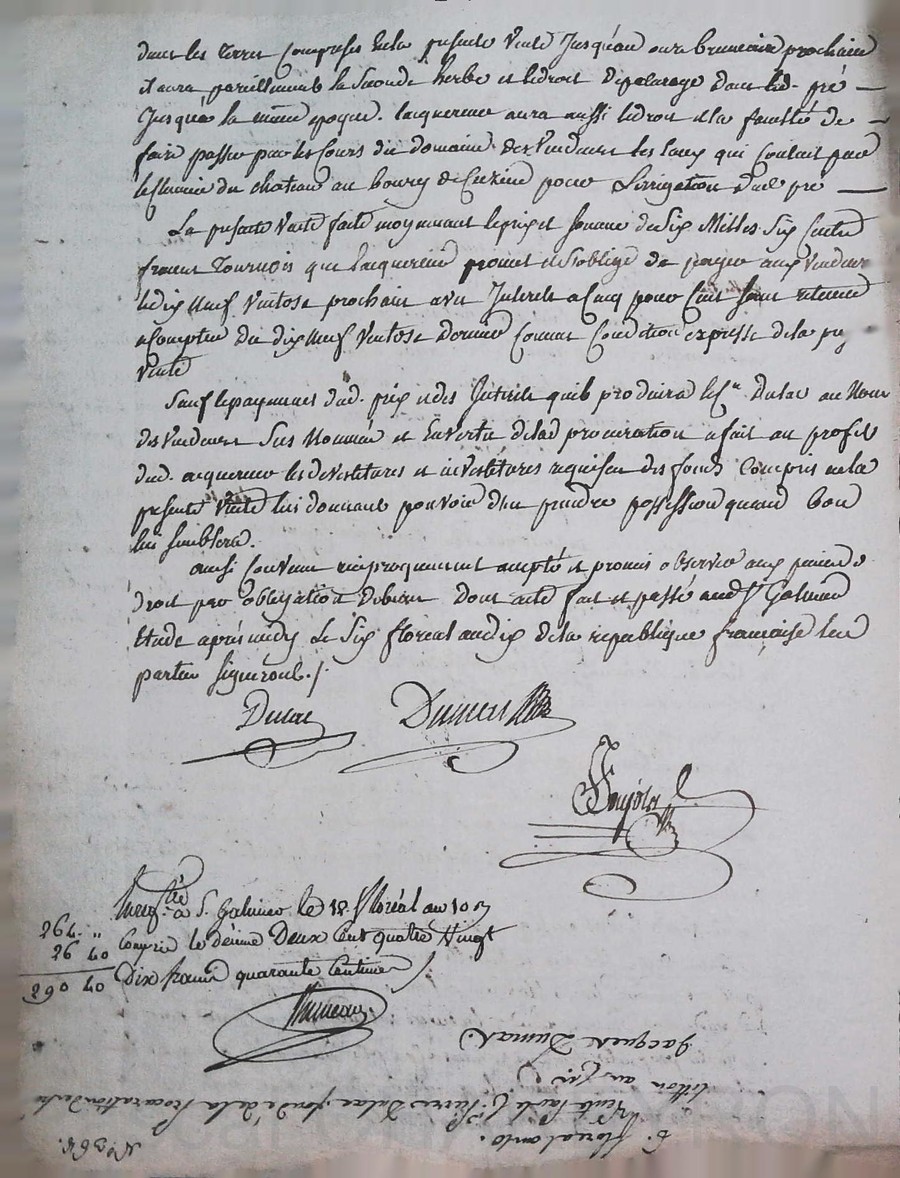 dans les terres Comprises En la presente Vente Jusqu'au onze brumaire prochain
il aura pareillement la Seconde herbe et le droit depaturage dans led. pré
Jusqu'a la même epoque. lacquereur aura aussi le droit et la faculté de
faire passer par les Cours du domaine des Vendeurs les Eaux qui Coulent par
le Chemin du chateau au bourg de Cuzieu pour L'irrigation dud pré
La presente Vente faite moyennant le prix et Somme de Six Milles Six Cents
francs Tournois que lacquereur promet et s'oblige de payer aux Vendeurs
le dix Neuf Ventose prochain avec Interets a Cinq pour Cent Sans retenue
a Compter du dix Neuf Ventose Dernier Comme Condition expresse de la
Vente
Sauf le payement dud. prix et des Interets qu'il produira le Cn. Dulac au Nom
des Vendeurs Sus Nommés et En Vertu de lad procuration a fait au profit
dud. acquereur les devestitures et investitures requises des fonds Compris en la
presente Vente lui donnant pouvoir d'en prendre possession quand bon
lui Semblera.
ainsi Convenu reciproquement accepté et promis observer aux peines de
droit par obligation de biens Dont acte fait et passé aud St Galmier
Etude après midy Le Six floreal an dix de la republique française les
parties Signeront./.
Dulac Dumas
Enregtré a S. Galmier le 18. floréal an 10
264. „ Compris le décime Deux Cent quatre Vingt
26 40
290 40 Dix francs quarante Centimes
6. floreal an 10.
Vente par le C. Pierre Dulac fondé de la Procuration de la
Jacques Dumas.